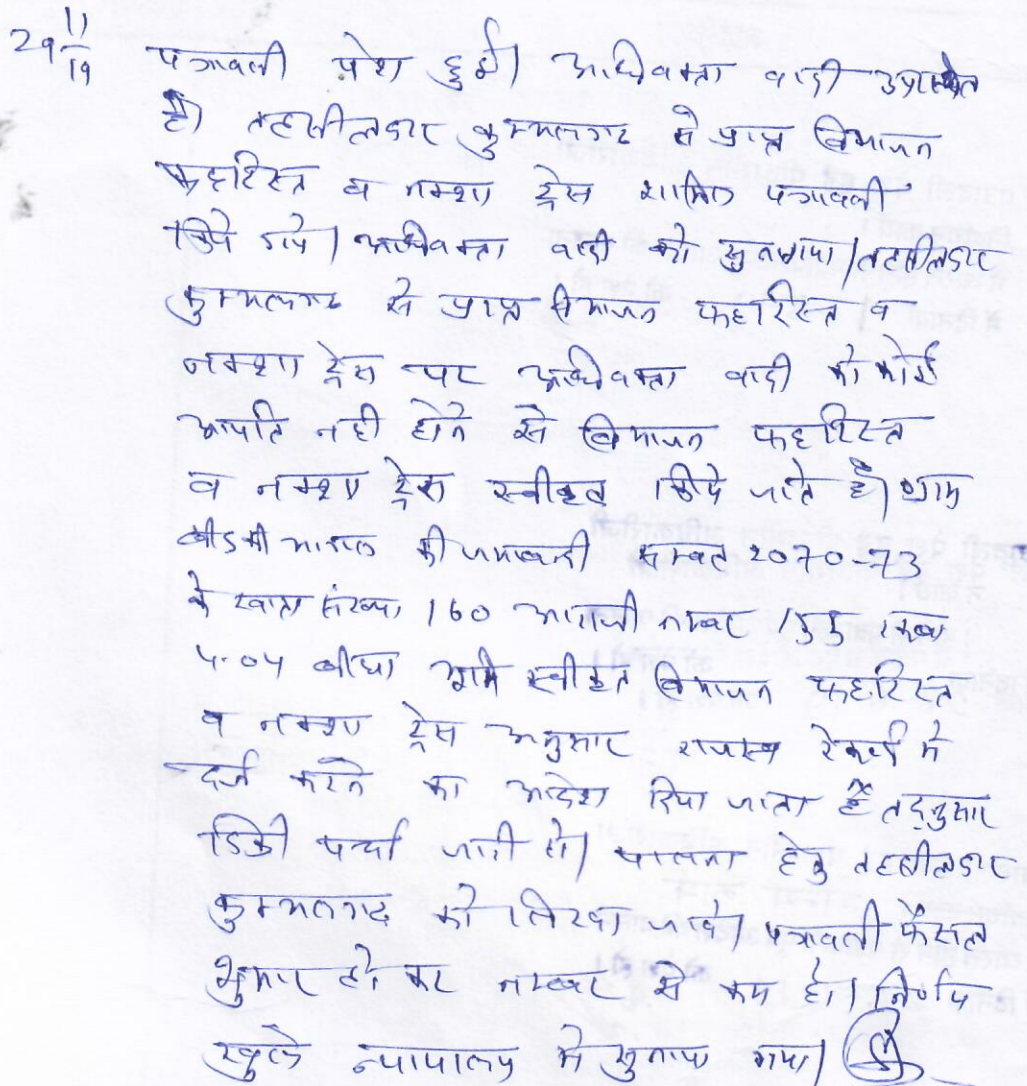 29 11/19 पत्रावली पेश हुई। अधिवक्ता वादी उपस्थित
है। तहसीलदार कुम्भलगढ से प्राप्त विभाजन
फहरिस्त व नक्शा ट्रेस शामिल पत्रावली
किये गये। अधिवक्ता वादी को सुना गया। तहसीलदार
कुम्भलगढ से प्राप्त विभाजन फहरिस्त व
नक्शा ट्रेस पर अधिवक्ता वादी को कोई
आपति नही होने से विभाजन फहरिस्त
व नक्शा ट्रेस स्वीकृत किये जाते है। ग्राम
की जमाबन्दी सम्वत 2070-73
के खाता संख्या 160 आराजी नम्बर रकबा
4.04 बीघा भूमि स्वीकृत विभाजन फहरिस्त
व नक्शा ट्रेस अनुसार राजस्व रेकर्ड मे
दर्ज करने का आदेश दिया जाता है तद्नुसार
डिक्री पर्चा जारी हो। पालना हेतु तहसीलदार
कुम्भलगढ को लिखा जावे। पत्रावली फैसल
शुमार हो कर नम्बर से कम हो। निर्णय
खुले न्यायालय मे सुनाया गया।